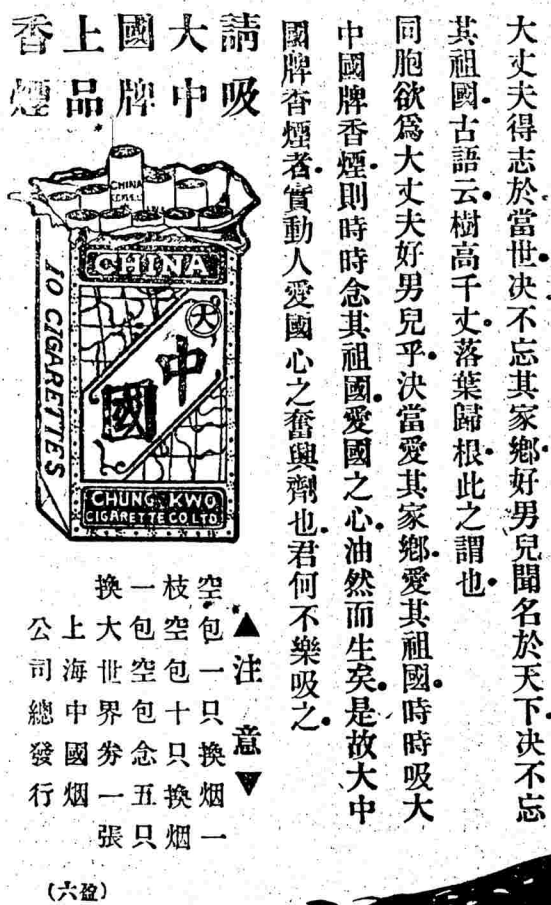 大丈夫得志於當世决不忘其家鄉好男兒聞名於天下决不忘
其祖國古語云樹高千丈落葉歸根此之謂也
同胞欲爲大丈夫好男兒乎決當愛其家鄉愛其祖國時時吸大
中國牌香煙則時時念其祖國愛國之心油然而生矣是故大中
國牌香煙者實動人愛國心之奮興劑也君何不樂吸之
請吸
大中
國牌
上品
香煙
CHINA
CHINA
大
中國
10 CIGARETTES
CHUNG KWO
CIGARETTE CO LTD
▲注意▼
空包一只換烟一
枝空包十只換烟
一包空包念五只
換大世界券一張
上海中國烟
公司總發行
(六盈)